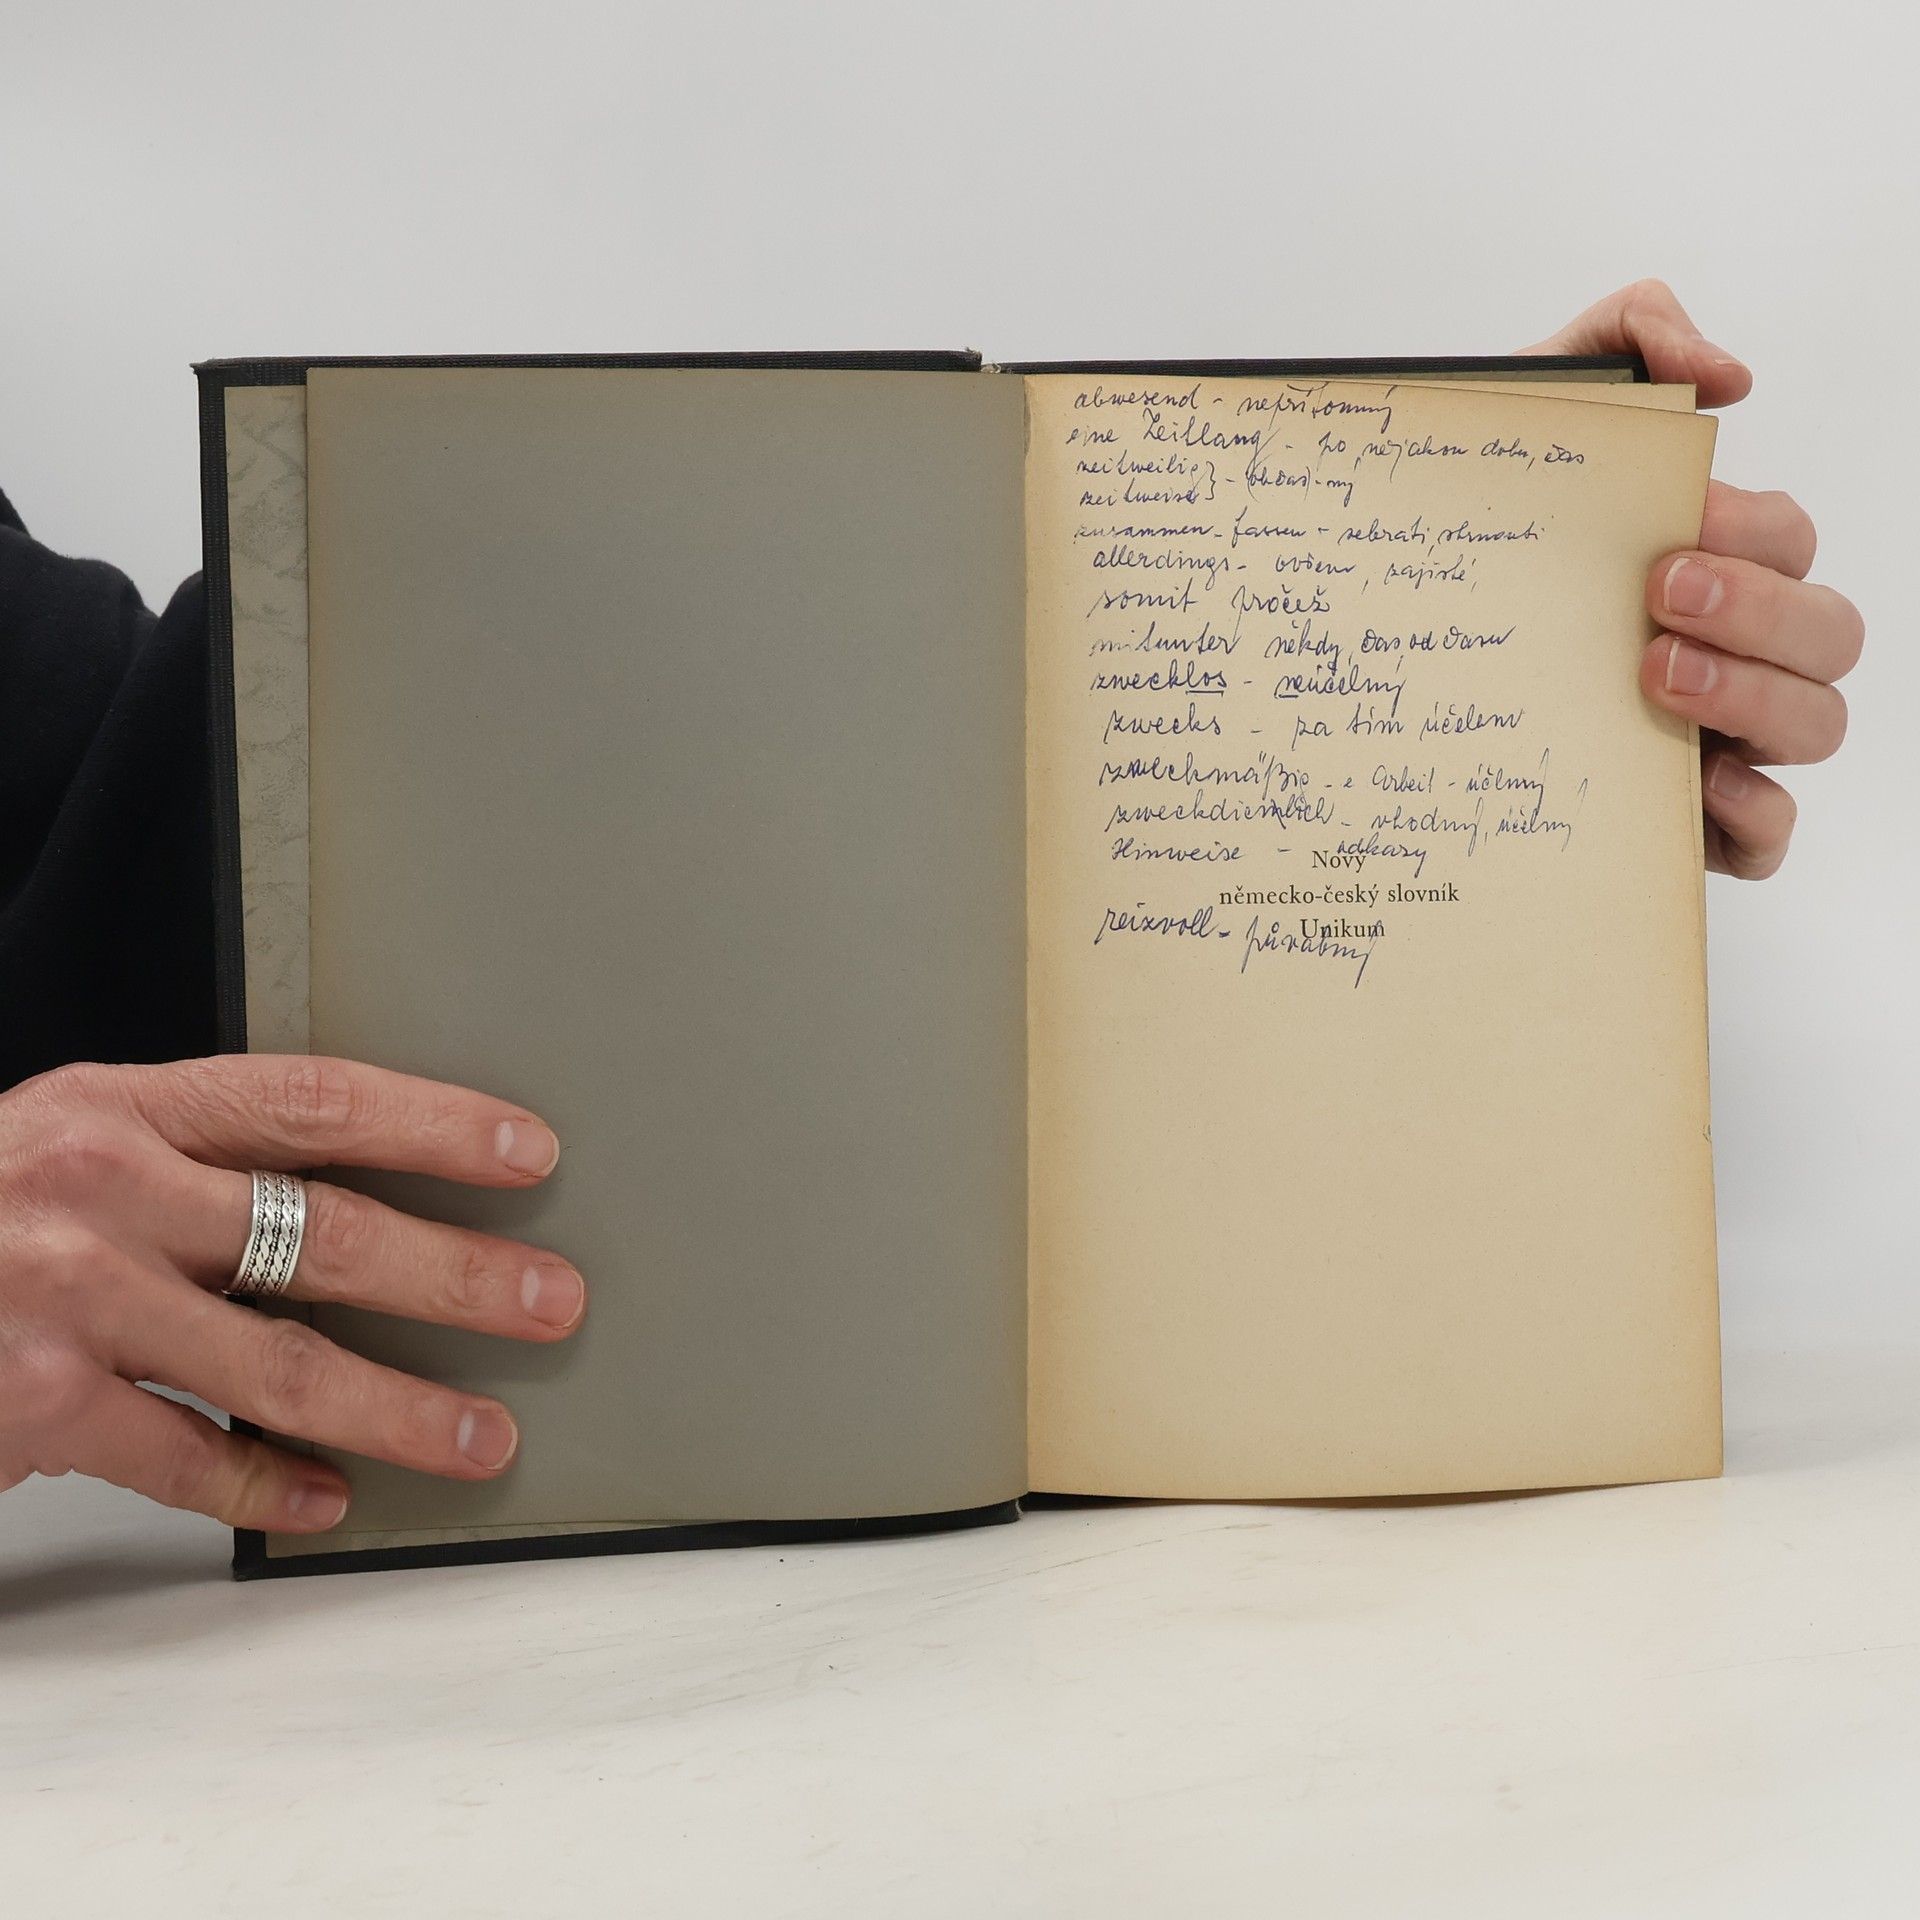 abwesend - nepřítomný
eine Zeitlang - po nějakou dobu, čas
zeitweilig } - (občas)-ný
zeitweise
zusammen-fassen - sebrati, shrnouti
allerdings - ovšem, zajisté,
somit pročež
mitunter někdy, čas od času
zwecklos - neúčelný
zwecks - za tím účelem
zweckmäßig - e Arbeit - účelný
zweckdienlich - vhodný, účelný
Hinweise - odkazy
Nový
německo-český slovník
Unikum
reizvoll - půvabný